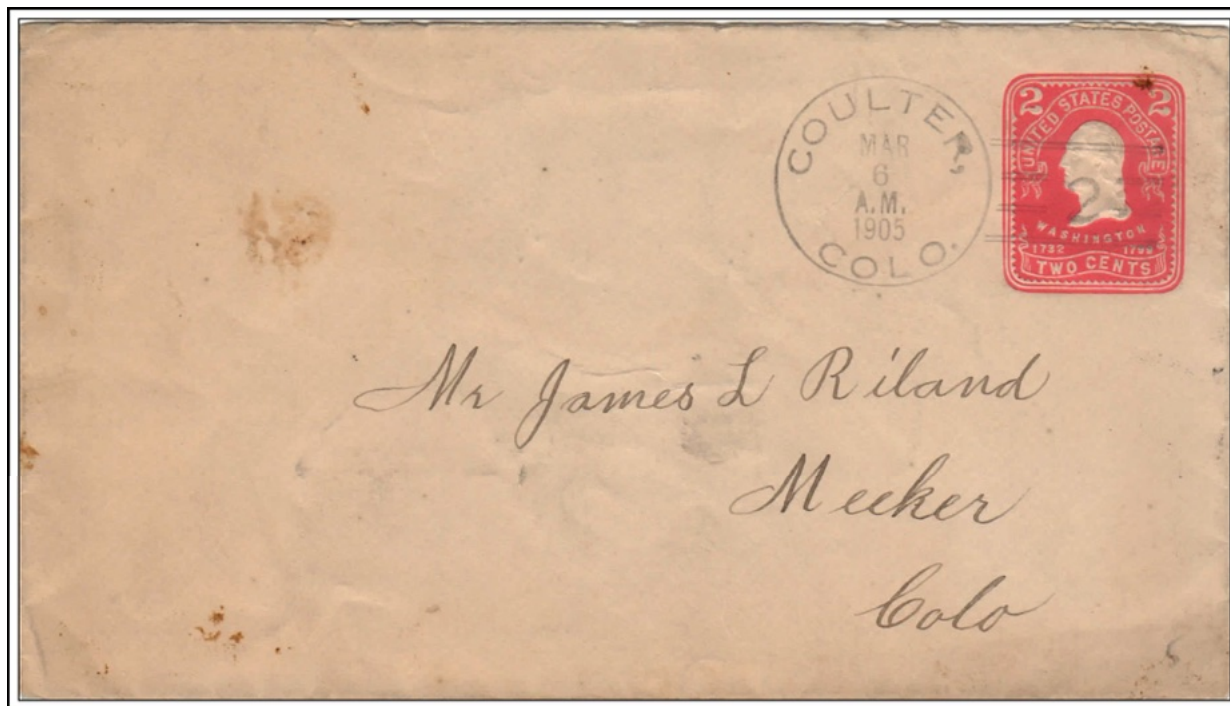 COULTER,
MAR
6
A.M.
1905
COLO.
2 2
UNITED STATES POSTAGE
WASHINGTON
1732 1799
TWO CENTS
Mr James L Riland
Meeker
Colo